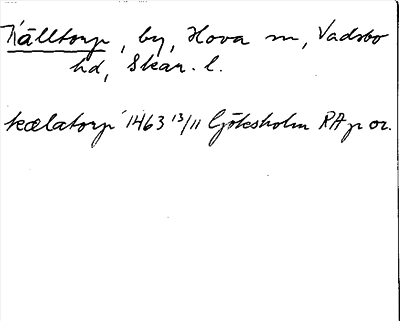 Källtorp, by, Hova sn, Vadsbo
hd, Skar. l.
kælatorp 1463 13/11 Göksholm RA p or.